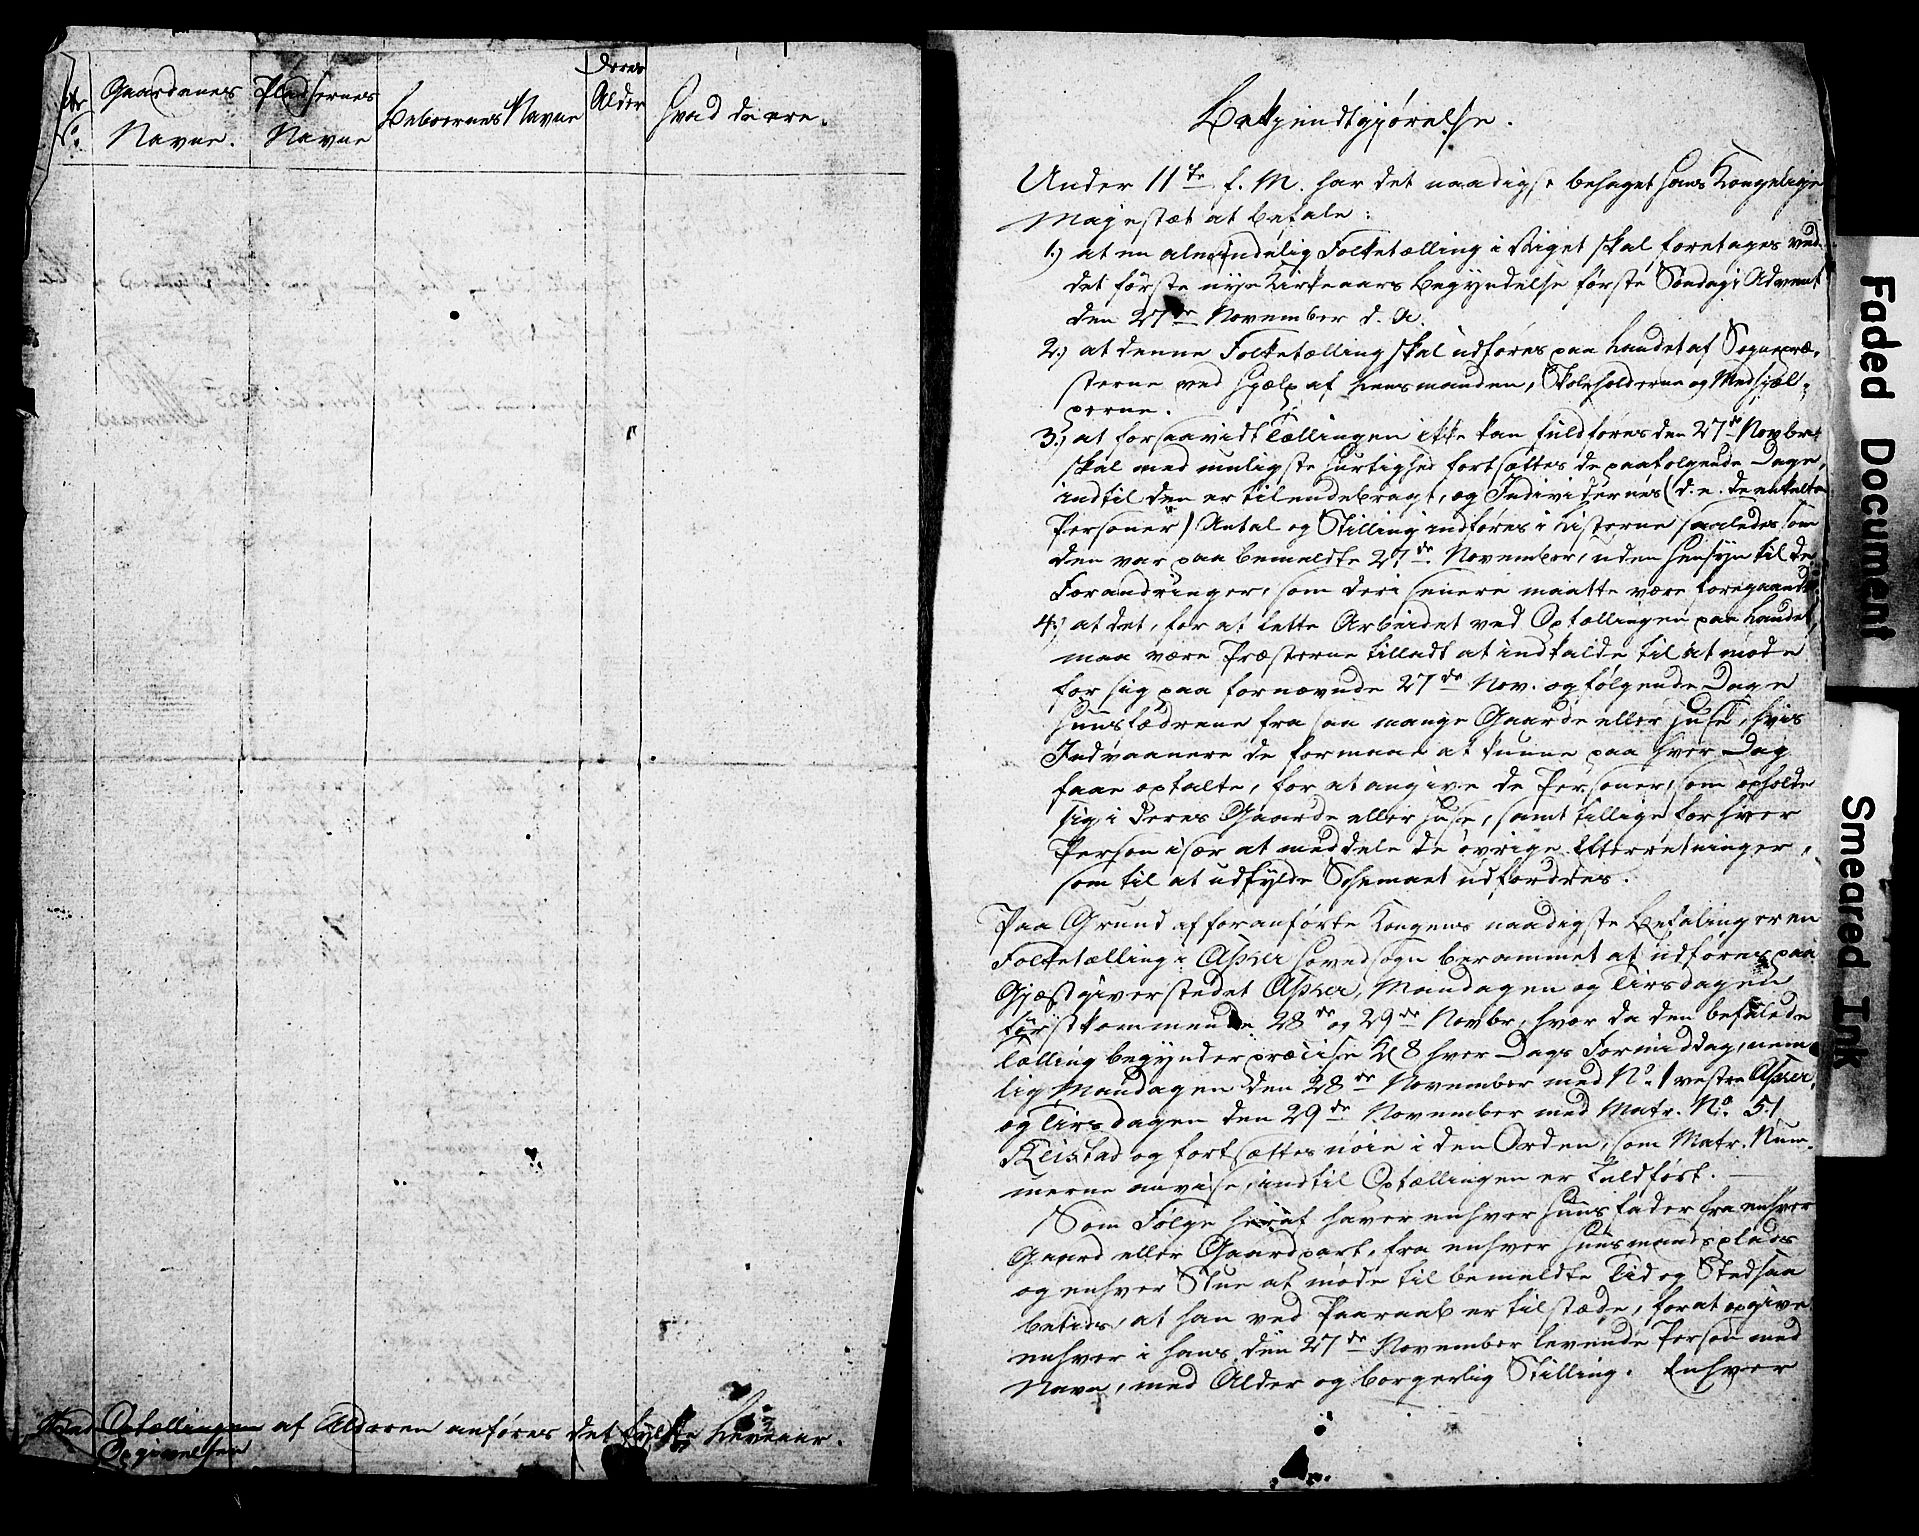 No.
Gaardenes
Navne.
Pladsernes
Navne
Beboernes Navne
Deres
Alder
Hvad de ere.
Ved Optællingen af Alderen anføres det fyldte Leveaar.
Opgivelsen
Bekjendtgjørelse.
Under 11te f. M. har det naadigst behaget Hans Kongelige
Majestæt at befale:
1.) at en almindelig Folketælling i Riget skal foretages ved
det første nye Kirkeaars Begyndelse første Søndag i Advent
den 27de November d. A.
2.) at denne Folketælling skal udføres paa Landet af Sognepræ-
sterne ved Hjælp af Lensmanden, Skoleholderne og Medhjæl-
perne.
3.) at forsaavidt Tællingen ikke kan fuldføres den 27de Novbr.
skal med muligste Hurtighed fortsættes de paafølgende Dage,
indtil den er tilendebragt, og Individernes (d. e. de enkelte
Personer) Antal og Stilling indføres i Listerne saaledes som
den var paa bemeldte 27de November, uden Hensyn til de
Forandringer, som deri senere maatte være foregaaede.
4.) at det, for at lette Arbeidet ved Optællingen paa Landet,
maa være Præsterne tilladt at indkalde til at møde
for sig paa fornævnde 27de Nov. og følgende Dage
Huusfædrene fra saa mange Gaarde eller Huse, hvis
Indvaanere de formaae at kunne paa hver Dag
faae optalte, for at angive de Personer, som opholde
sig i deres Gaarde eller Huse, samt tillige for hver
Person især at meddele de øvrige Efterretninger,
som til at udfylde Schemaet udfordres.
Paa Grund af foranførte Kongens naadigste Befaling er en
Folketælling i Asker Hovedsogn berammet at udføres paa
Gjæstgiverstedet Asker, Mandagen og Tirsdagen
førstkommende 28de og 29de Novbr, hvor da den befalede
Tælling begynder præcise Kl 8 hver Dags Formiddag, nem-
lig Mandagen den 28de November med No. 1 vestre Asker,
og Tirsdagen den 29de November med Matr. No. 51
Reistad og fortsættes nøie i den Orden, som Matr. Num-
merne anvise, indtil Optællingen er fuldført.
Som Følge heraf haver enhver Huusfader fra enhver
Gaard eller Gaardpart, fra enhver Huusmandsplads
og enhver Stue at møde til bemeldte Tid og Sted saa
betids, at han ved Paaraab er tilstæde, for at opgive
enhver i hans den 27de November levende Person med
Navn, med Alder og borgerlig Stilling. Enhver
Faded Document
Smeared Ink